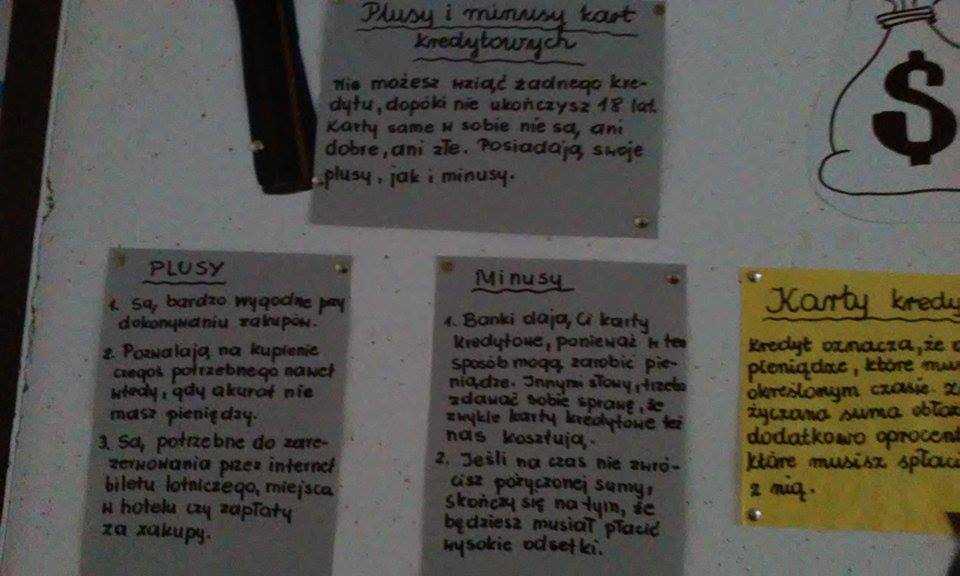 Plusy i minusy kart
kredytowych
Nie możesz wziąć żadnego kre-
dytu, dopóki nie ukończysz 18 lat.
Karty same w sobie nie są, ani
dobre, ani złe. Posiadają swoje
plusy, jak i minusy.
$
PLUSY
1. Są bardzo wygodne przy
dokonywaniu zakupów.
2. Pozwalają na kupienie
czegoś potrzebnego nawet
wtedy, gdy akurat nie
masz pieniędzy.
3. Są potrzebne do zare-
zerwowania przez internet
biletu lotniczego, miejsca
w hotelu czy zapłaty
za zakupy.
Minusy
1. Banki dają Ci karty
kredytowe, ponieważ w ten
sposób mogą zarobić pie-
niądze. Innymi słowy, trzeba
zdawać sobie sprawę, że
zwykle karty kredytowe też
nas kosztują.
2. Jeśli na czas nie zwró-
cisz pożyczonej sumy,
skończy się na tym, że
będziesz musiał płacić
wysokie odsetki.
Karty kredy
Kredyt oznacza, że
pieniądze, które mu
określonym czasie
życzana suma obło
dodatkowo oprocent
które musisz spłaci
z nią.